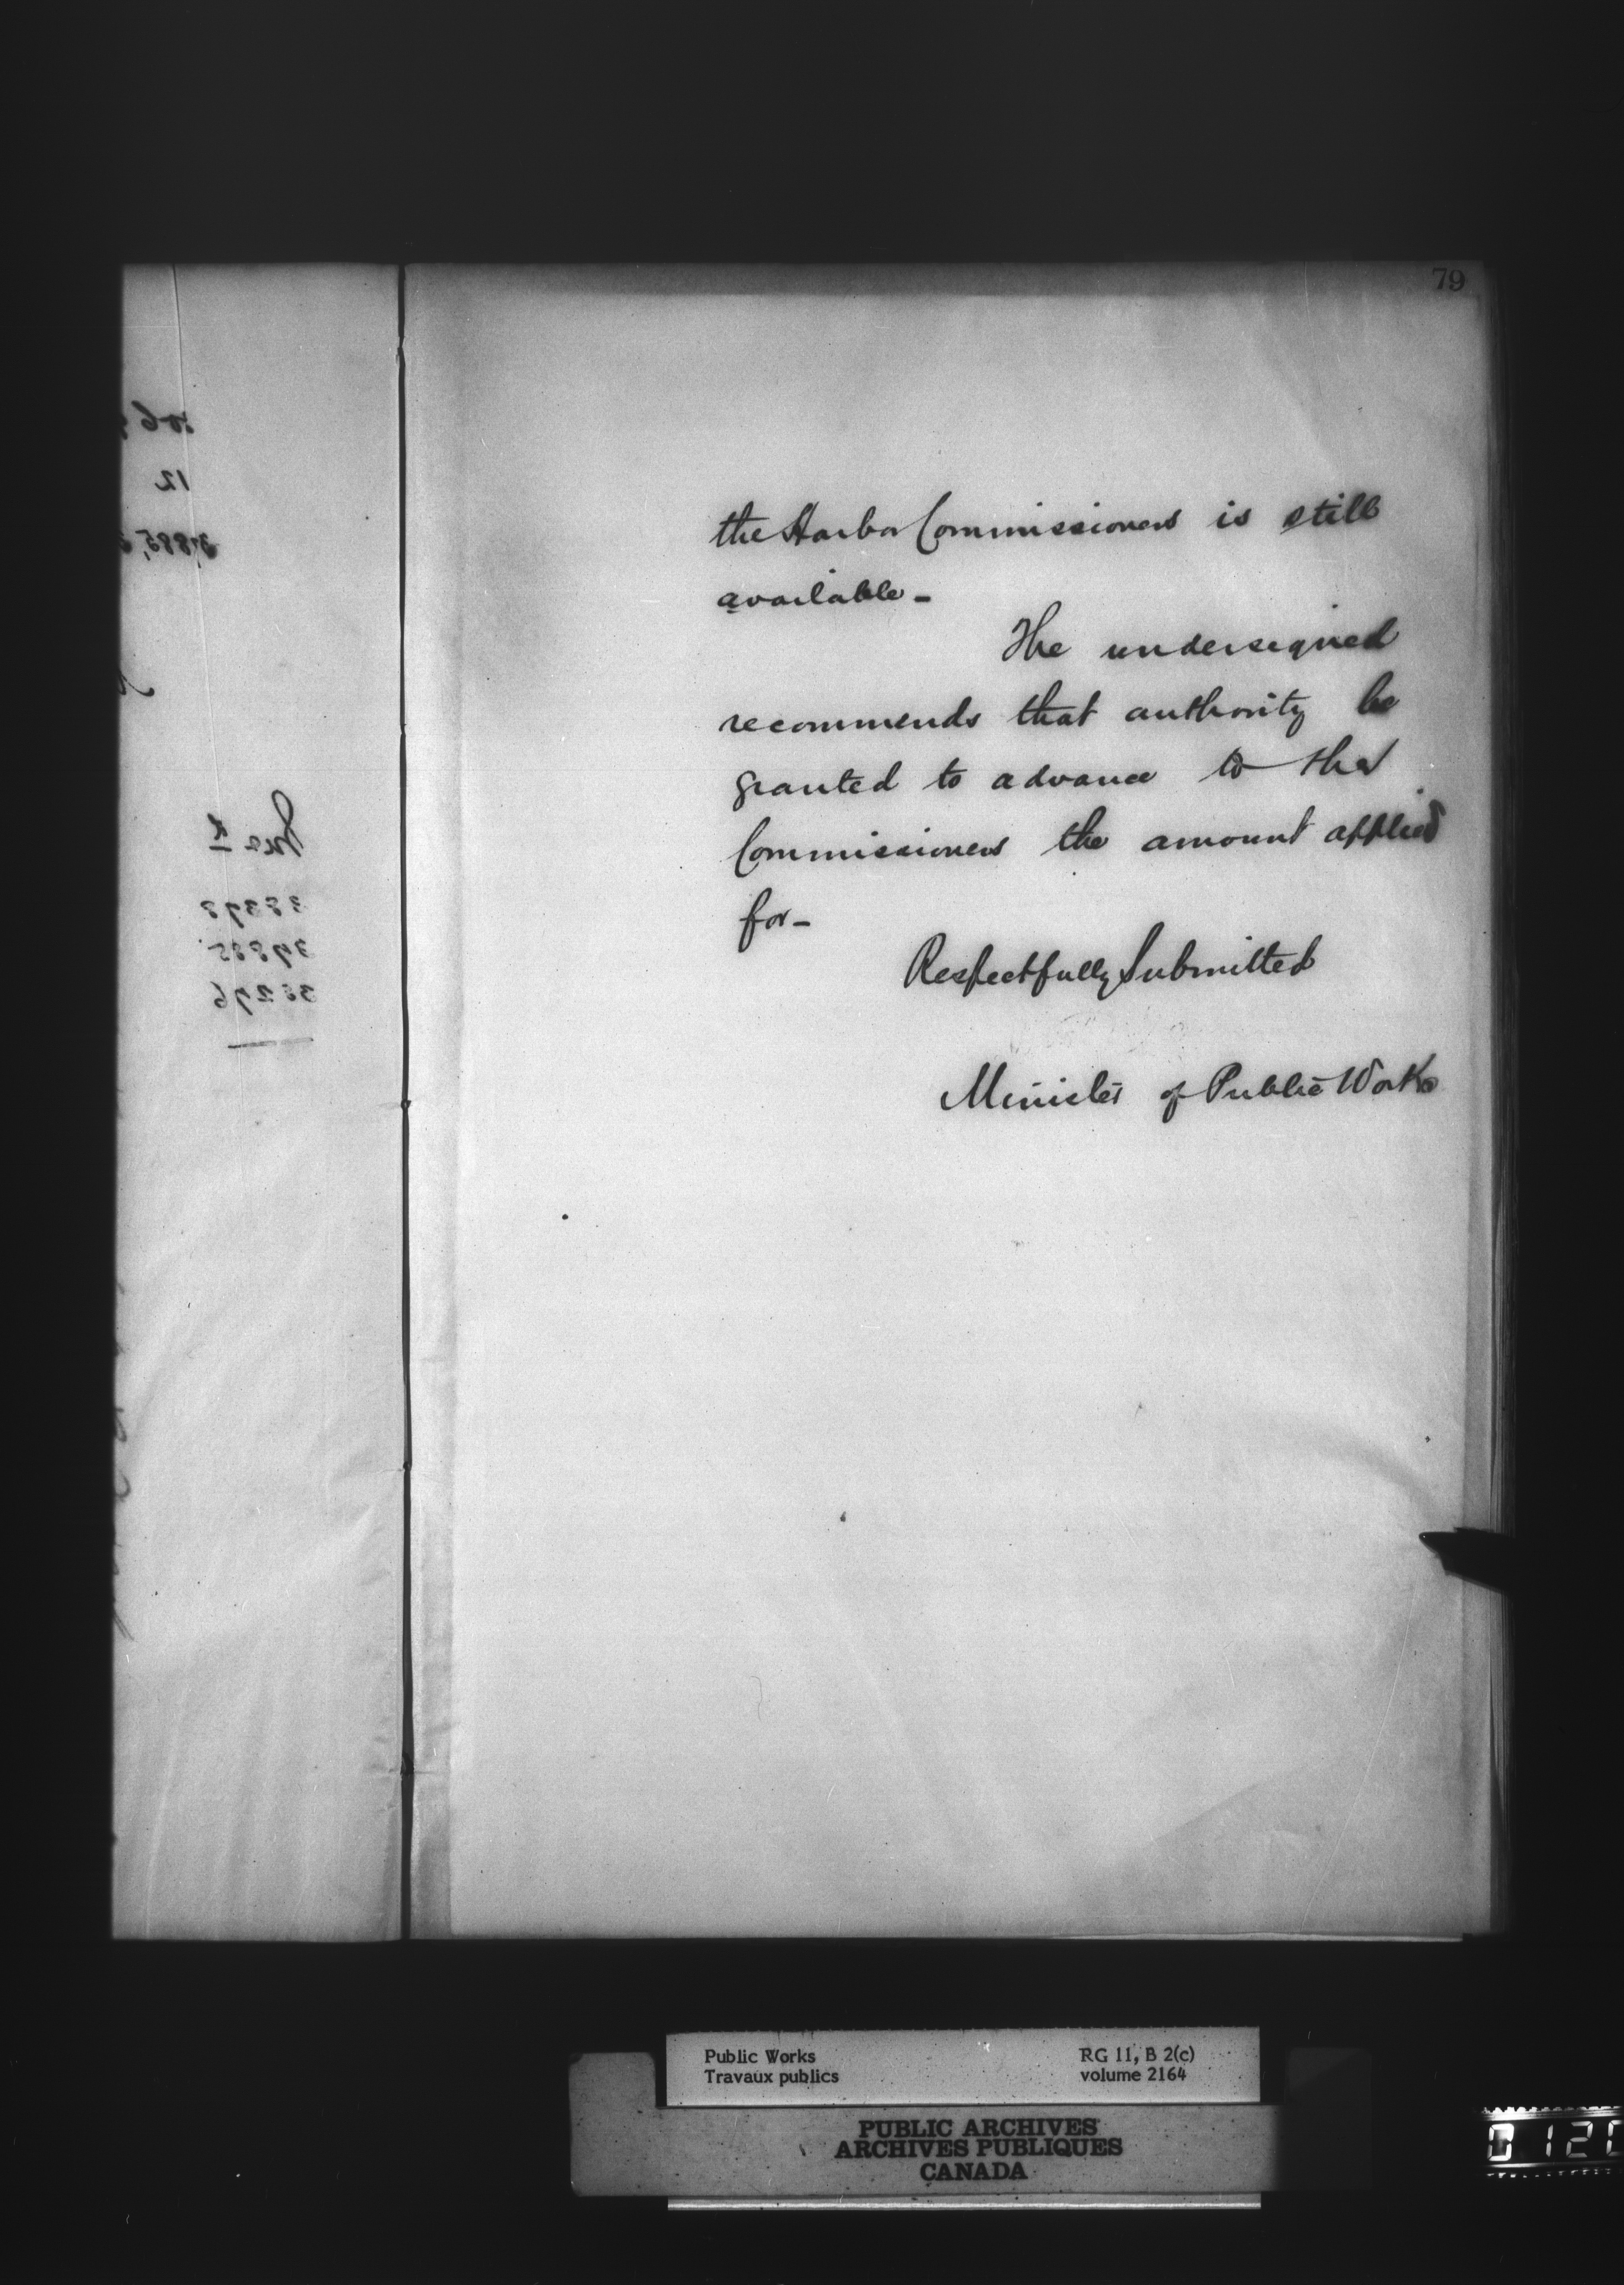 79
the Harbor Commissioners is still
available -
The undersigned
recommends that authority be
granted to advance to the
Commissioners the amount applied
for -
Respectfully Submitted
Minister of Public Works
12
38398
39885
38296
Public Works
Travaux publics
RG 11, B 2(c)
volume 2164
PUBLIC ARCHIVES
ARCHIVES PUBLIQUES
CANADA